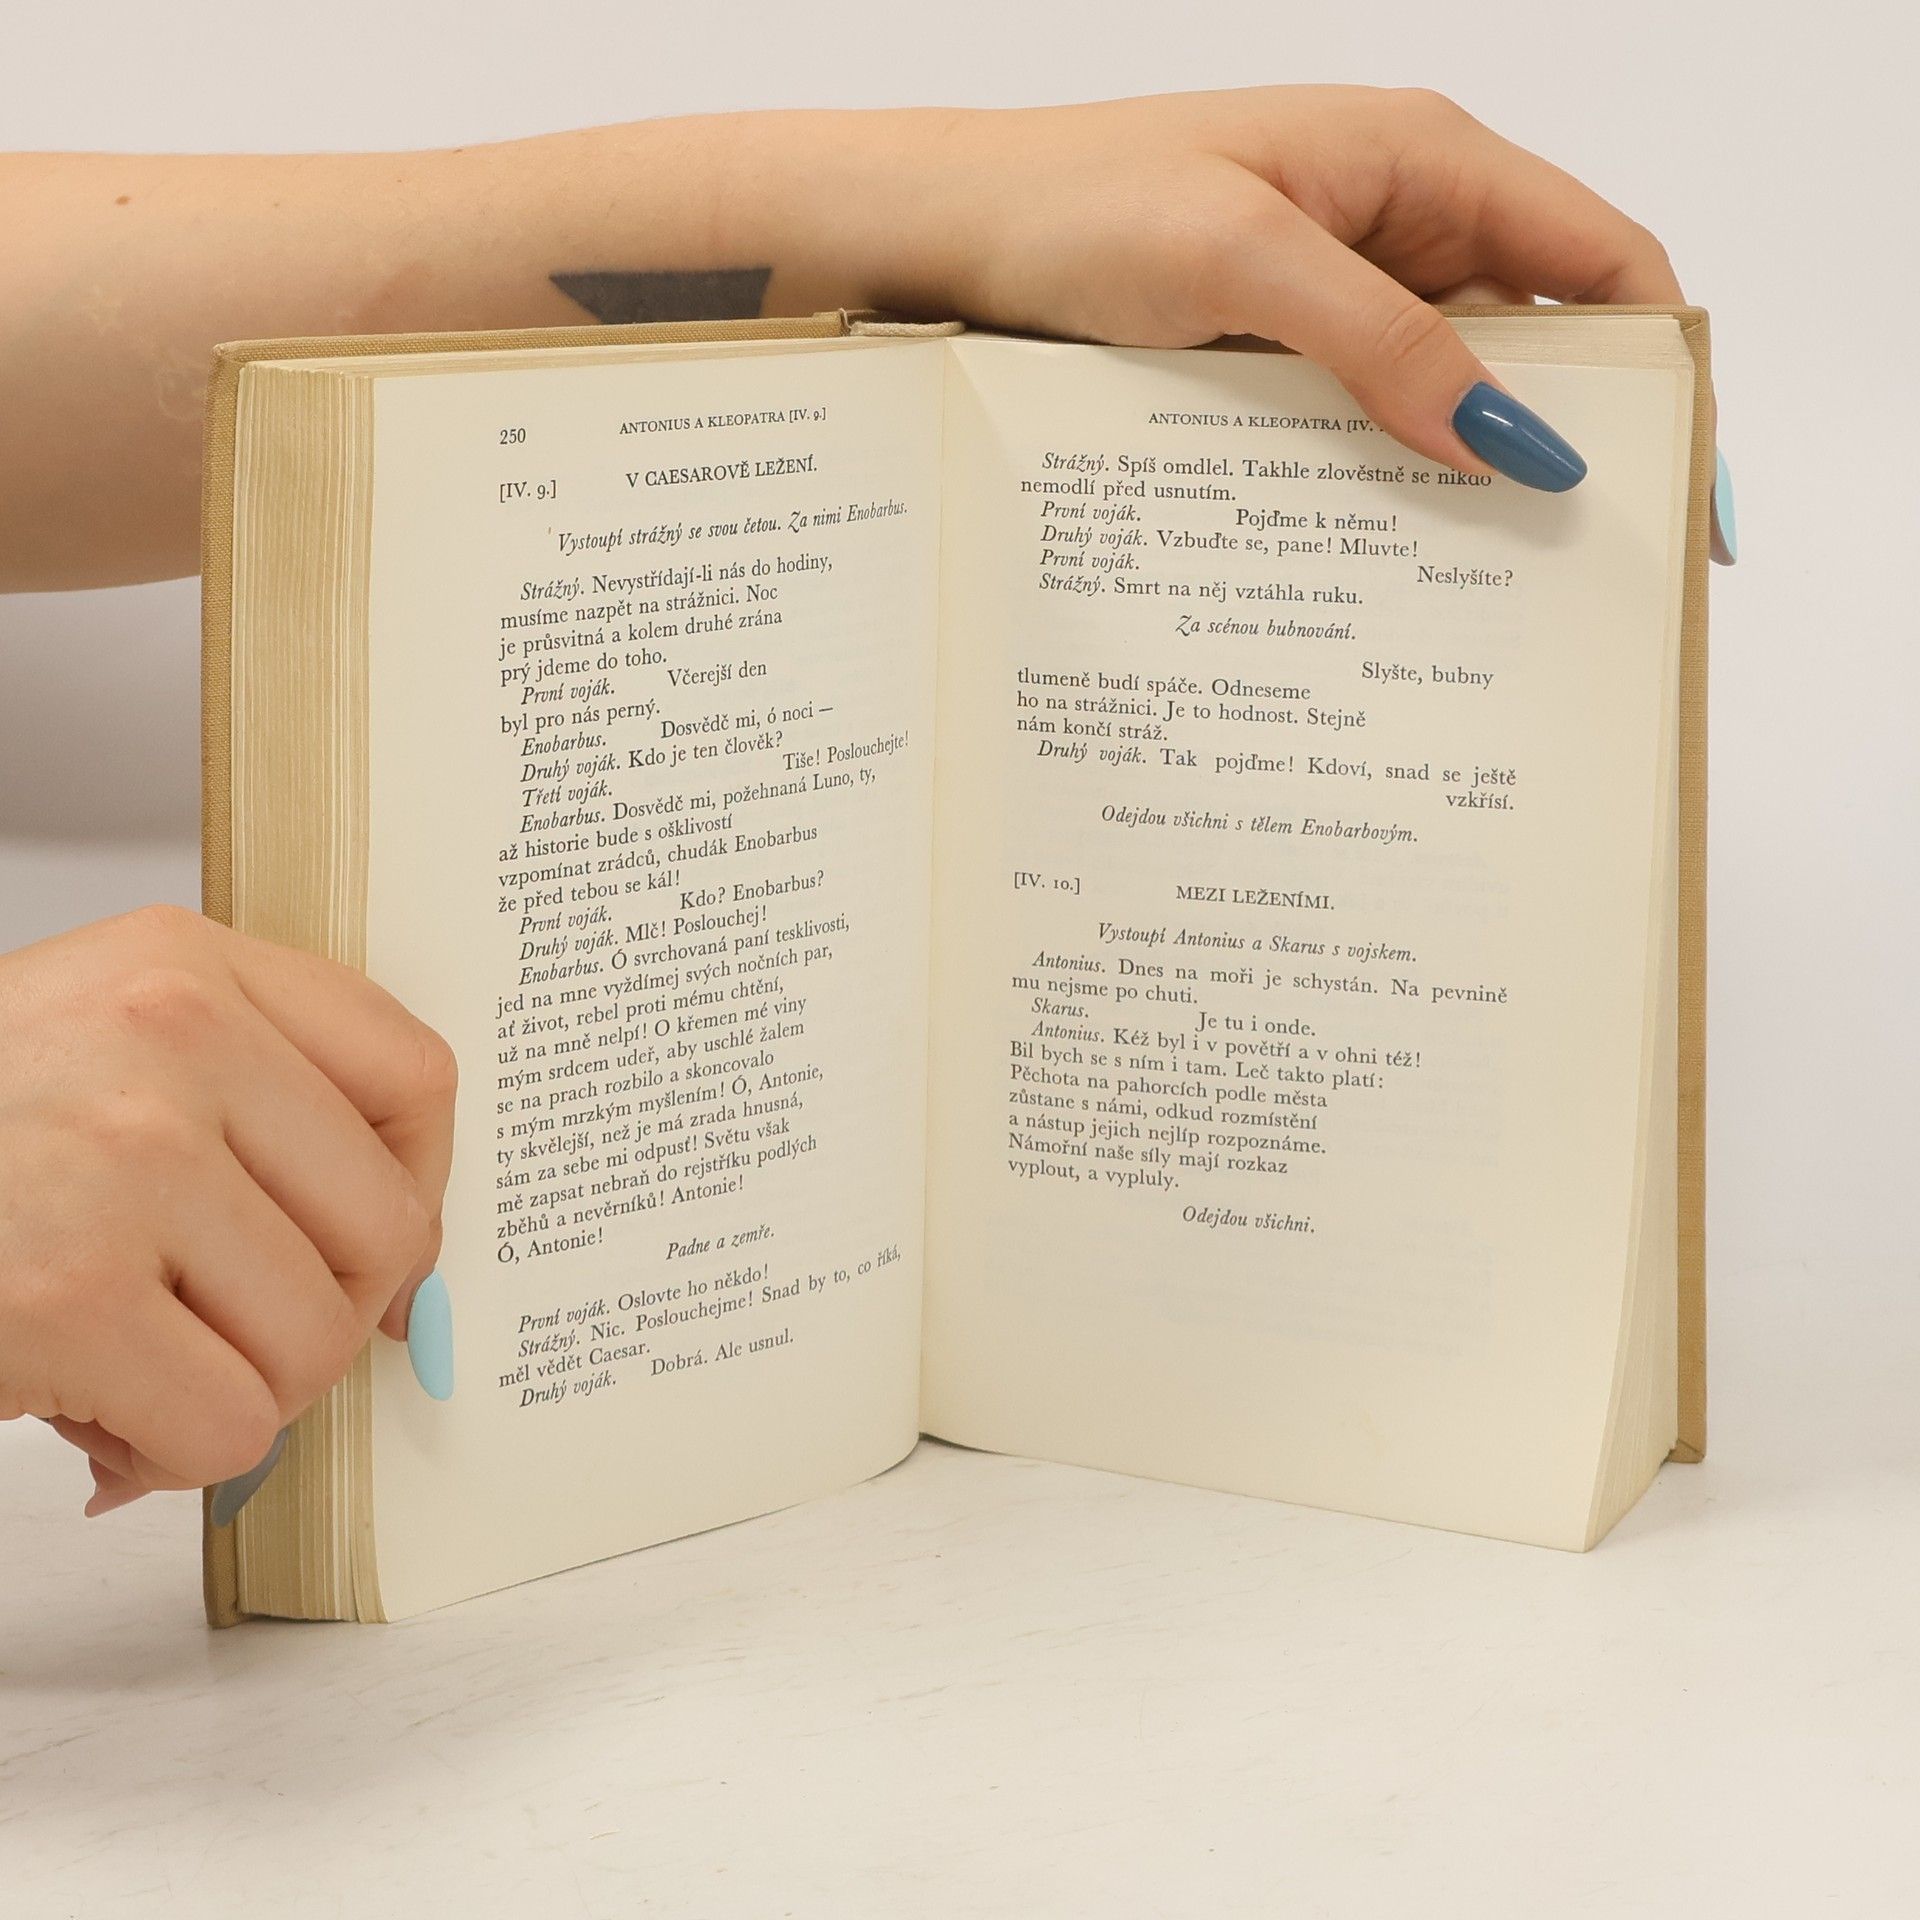 250 ANTONIUS A KLEOPATRA [IV. 9.]
[IV. 9.] V CAESAROVĚ LEŽENÍ.
Vystoupí strážný se svou četou. Za nimi Enobarbus.
Strážný. Nevystřídají-li nás do hodiny,
musíme nazpět na strážnici. Noc
je průsvitná a kolem druhé zrána
prý jdeme do toho.
První voják. Včerejší den
byl pro nás perný.
Enobarbus. Dosvědč mi, ó noci —
Druhý voják. Kdo je ten člověk?
Třetí voják. Tiše! Poslouchejte!
Enobarbus. Dosvědč mi, požehnaná Luno, ty,
až historie bude s ošklivostí
vzpomínat zrádců, chudák Enobarbus
že před tebou se kál!
První voják. Kdo? Enobarbus?
Druhý voják. Mlč! Poslouchej!
Enobarbus. Ó svrchovaná paní tesklivosti,
jed na mne vyždímej svých nočních par,
ať život, rebel proti mému chtění,
už na mně nelpí! O křemen mé viny
mým srdcem udeř, aby uschlé žalem
se na prach rozbilo a skoncovalo
s mým mrzkým myšlením! Ó, Antonie,
ty skvělejší, než je má zrada hnusná,
sám za sebe mi odpusť! Světu však
mě zapsat nebraň do rejstříku podlých
zběhů a nevěrníků! Antonie!
Ó, Antonie!
Padne a zemře.
První voják. Oslovte ho někdo!
Strážný. Nic. Poslouchejme! Snad by to, co říká,
měl vědět Caesar.
Druhý voják. Dobrá. Ale usnul.
ANTONIUS A KLEOPATRA [IV.
Strážný. Spíš omdlel. Takhle zlověstně se nikdo
nemodlí před usnutím.
První voják. Pojďme k němu!
Druhý voják. Vzbuďte se, pane! Mluvte!
První voják. Neslyšíte?
Strážný. Smrt na něj vztáhla ruku.
Za scénou bubnování.
Slyšte, bubny
tlumeně budí spáče. Odneseme
ho na strážnici. Je to hodnost. Stejně
nám končí stráž.
Druhý voják. Tak pojďme! Kdoví, snad se ještě
vzkřísí.
Odejdou všichni s tělem Enobarbovým.
[IV. 10.] MEZI LEŽENÍMI.
Vystoupí Antonius a Skarus s vojskem.
Antonius. Dnes na moři je schystán. Na pevnině
mu nejsme po chuti.
Skarus. Je tu i onde.
Antonius. Kéž byl i v povětří a v ohni též!
Bil bych se s ním i tam. Leč takto platí:
Pěchota na pahorcích podle města
zůstane s námi, odkud rozmístění
a nástup jejich nejlíp rozpoznáme.
Námořní naše síly mají rozkaz
vyplout, a vypluly.
Odejdou všichni.